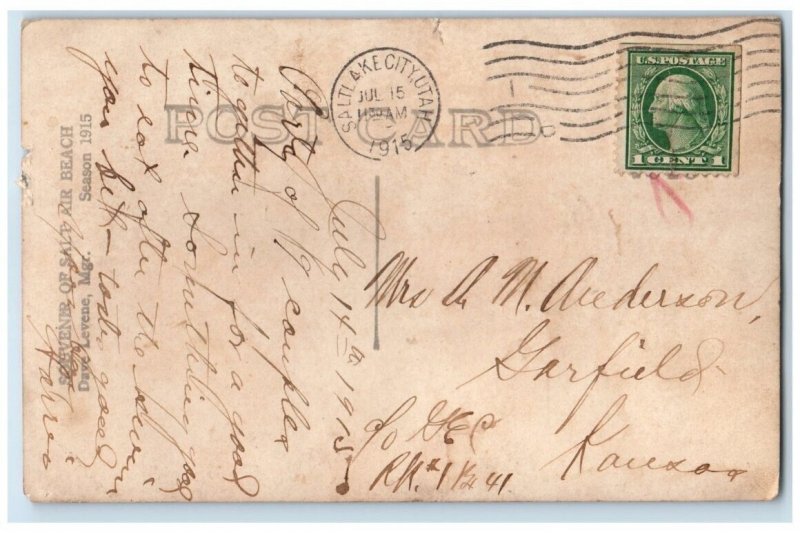 POST CARD
SALT LAKE CITY, UTAH
JUL 15
11 30 AM
1915
U.S. POSTAGE
1 CENT 1
SOUVENIR OF SALT AIR BEACH
Dave Levene, Mgr. Season 1915
July 14th 1915
Party of 19 couples
together in for a good
time Something good
to eat after the swim
you bet - looks good
Mrs A. M. Anderson,
Garfield
Kansas
c/o